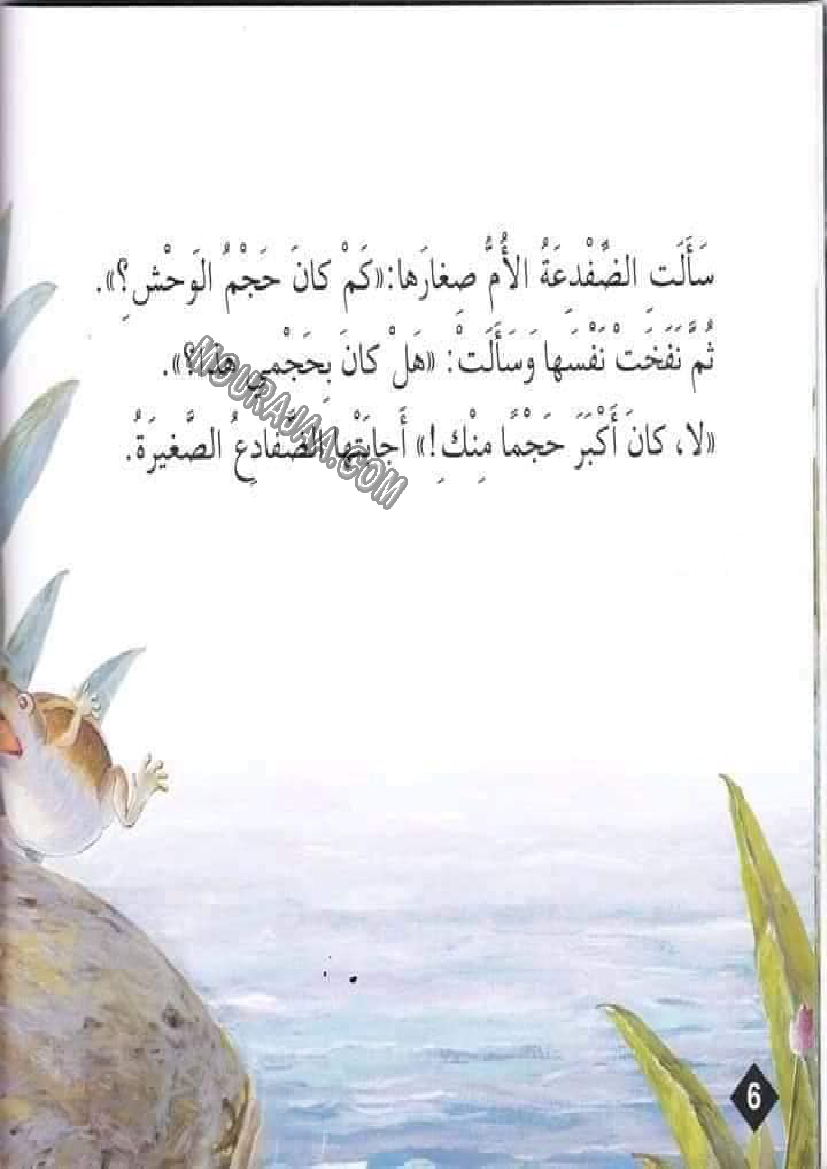 سَأَلَتِ الضِّفْدِعَةُ الأُمُّ صِغارَها:«كَمْ كانَ حَجْمُ الوَحْشِ؟».
ثُمَّ نَفَخَتْ نَفْسَها وَسَأَلَتْ: «هَلْ كانَ بِحَجْمي هٰذا؟».
«لا، كانَ أَكْبَرَ حَجْمًا مِنْكِ!» أَجابَتْها الضَّفادِعُ الصَّغيرَةُ.
MOURAJAA.COM
6